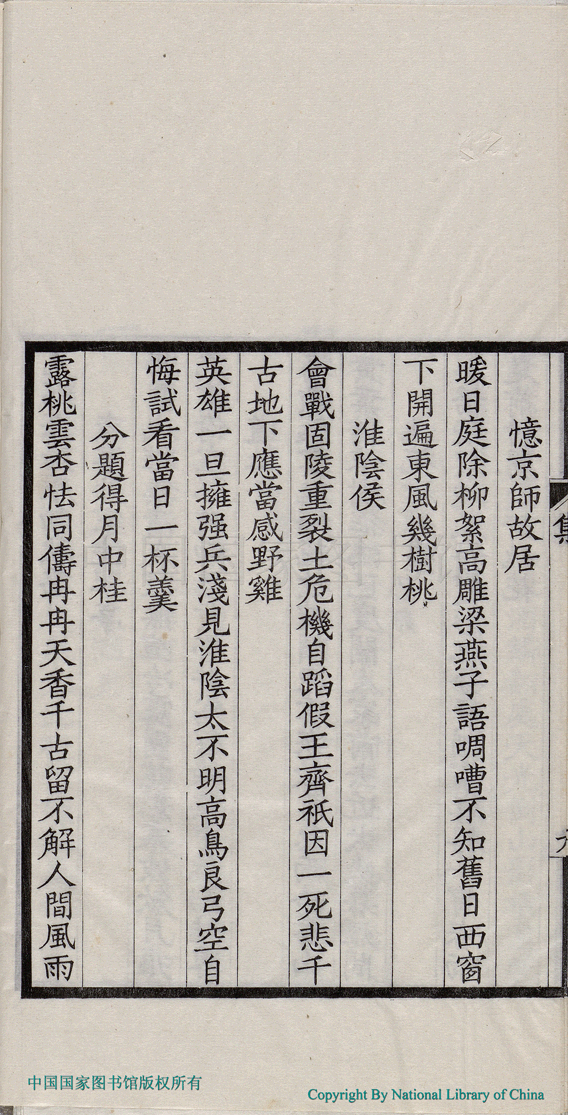 集
九
憶京師故居
暖日庭除柳絮高雕梁燕子語啁嘈不知舊日西窗
下開遍東風幾樹桃
淮陰侯
會戰固陵重裂土危機自蹈假王齊祇因一死悲千
古地下應當感野雞
英雄一旦擁强兵淺見淮陰太不明高鳥良弓空自
悔試看當日一杯羹
分題得月中桂
露桃雲杏怯同儔冉冉天香千古留不解人間風雨
中国国家图书馆版权所有
Copyright By National Library of China